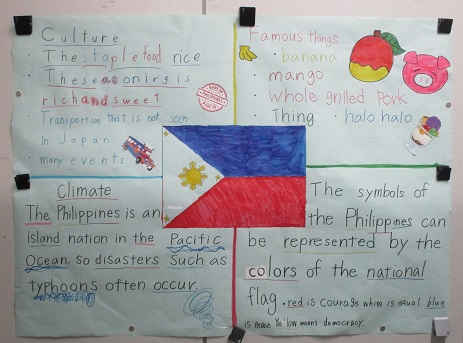 Culture
· The staple food rice
· The seasonirg is
rich and sweet
· Transportion that is not seen
in Japan
· many events
Famous things
· banana
· mango
· whole grilled pork
Thing · halo halo
Climate
The Philippines is an
island nation in the Pacific
Ocean. So disasters such as
typhoons often occur.
The symbols of
the Philippines can
be represented by the
colors of the national
flag. red is courage white is equal blue
is peace Yellow means democracy.